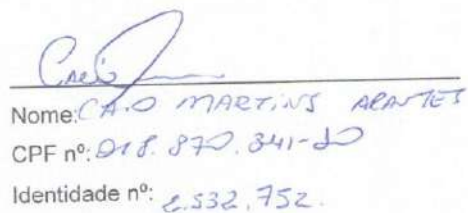 Caio
Nome: CAIO MARTINS ARANTES
CPF nº: 018.870.341-20
Identidade nº: 2.532.752.